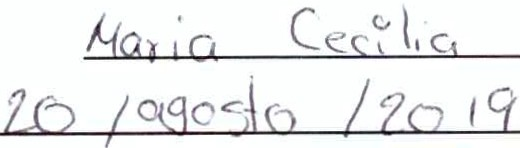 Maria Cecilia
20 / agosto / 2019